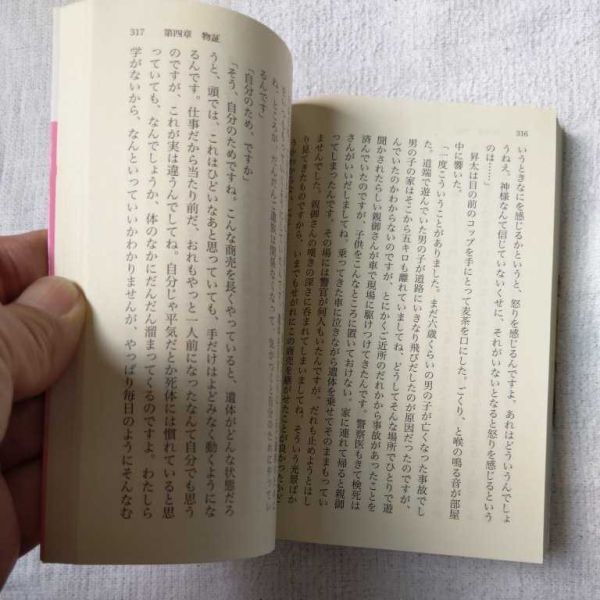 316
いうときなにを感じるかというと、怒りを感じるんですよ。あれはどういうんでしょ
うねえ。神様なんて信じていないくせに、それがいないとなると怒りを感じるという
のは……」
昇太は目の前のコップを手にとって麦茶を口にした。ごくり、と喉の鳴る音が部屋
中に響いた。
「一度こういうことがありました。まだ六歳くらいの男の子が亡くなった事故でし
た。道端で遊んでいた男の子が道路にいきなり飛びだしたのが原因だったのですが、
男の子の家はそこから五キロも離れていましてね、どうしてそんな場所でひとりで遊
んでいたのかわからないのですが、とにかくご近所のだれかから事故があったことを
聞かされたらしい親御さんが車で現場に駆けつけてきたんです。警察医もきて検死は
済んでいたのですが、子供をこんなところに置いておけない、家に連れて帰ると親御
さんがいいだしましてね。乗ってきた車に泣きながら遺体を乗せてそのままもってい
ってしまったんです。その場には警官が何人もいたんですが、だれも止めようとはし
ませんでした。親御さんの嘆きの深さに呑まれてしまいましてね。そういう光景ばか
り見てきたものですから、いまでもせがれにこの商売を継がせたことが良かったかど
317 第四章 物証
ね。ところが、だんだんご遺族は関係なくなって
るんです」
「自分のため、ですか」
「そう、自分のためですね。こんな商売を長くやっていると、遺体がどんな状態だろ
うと、頭では、これはひどいなあと思っていても、手だけはよどみなく動くようにな
るんです。仕事だから当たり前だ、おれもやっと一人前になったなんて自分でも思う
のですが、これが実は違うんでしてね。自分じゃ平気だとか死体には慣れていると思
っていても、なんでしょうか、体のなかにだんだん溜まってくるのですよ。わたしら
学がないから、なんといっていいかわかりませんが、やっぱり毎日のようにそんなむ